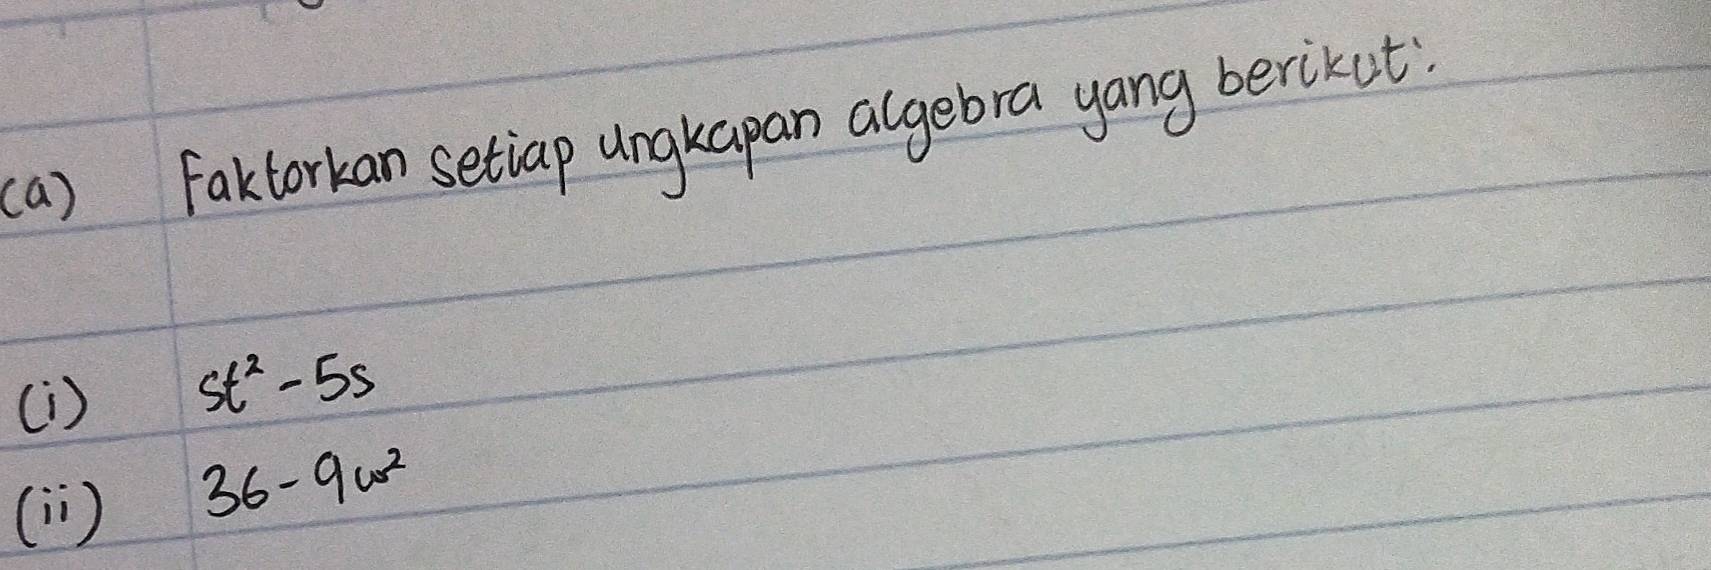 (a) Faktorkan setiap ungkapan algebra yang berikut:
(i) st² - 5s
(ii) 36 - 9w²